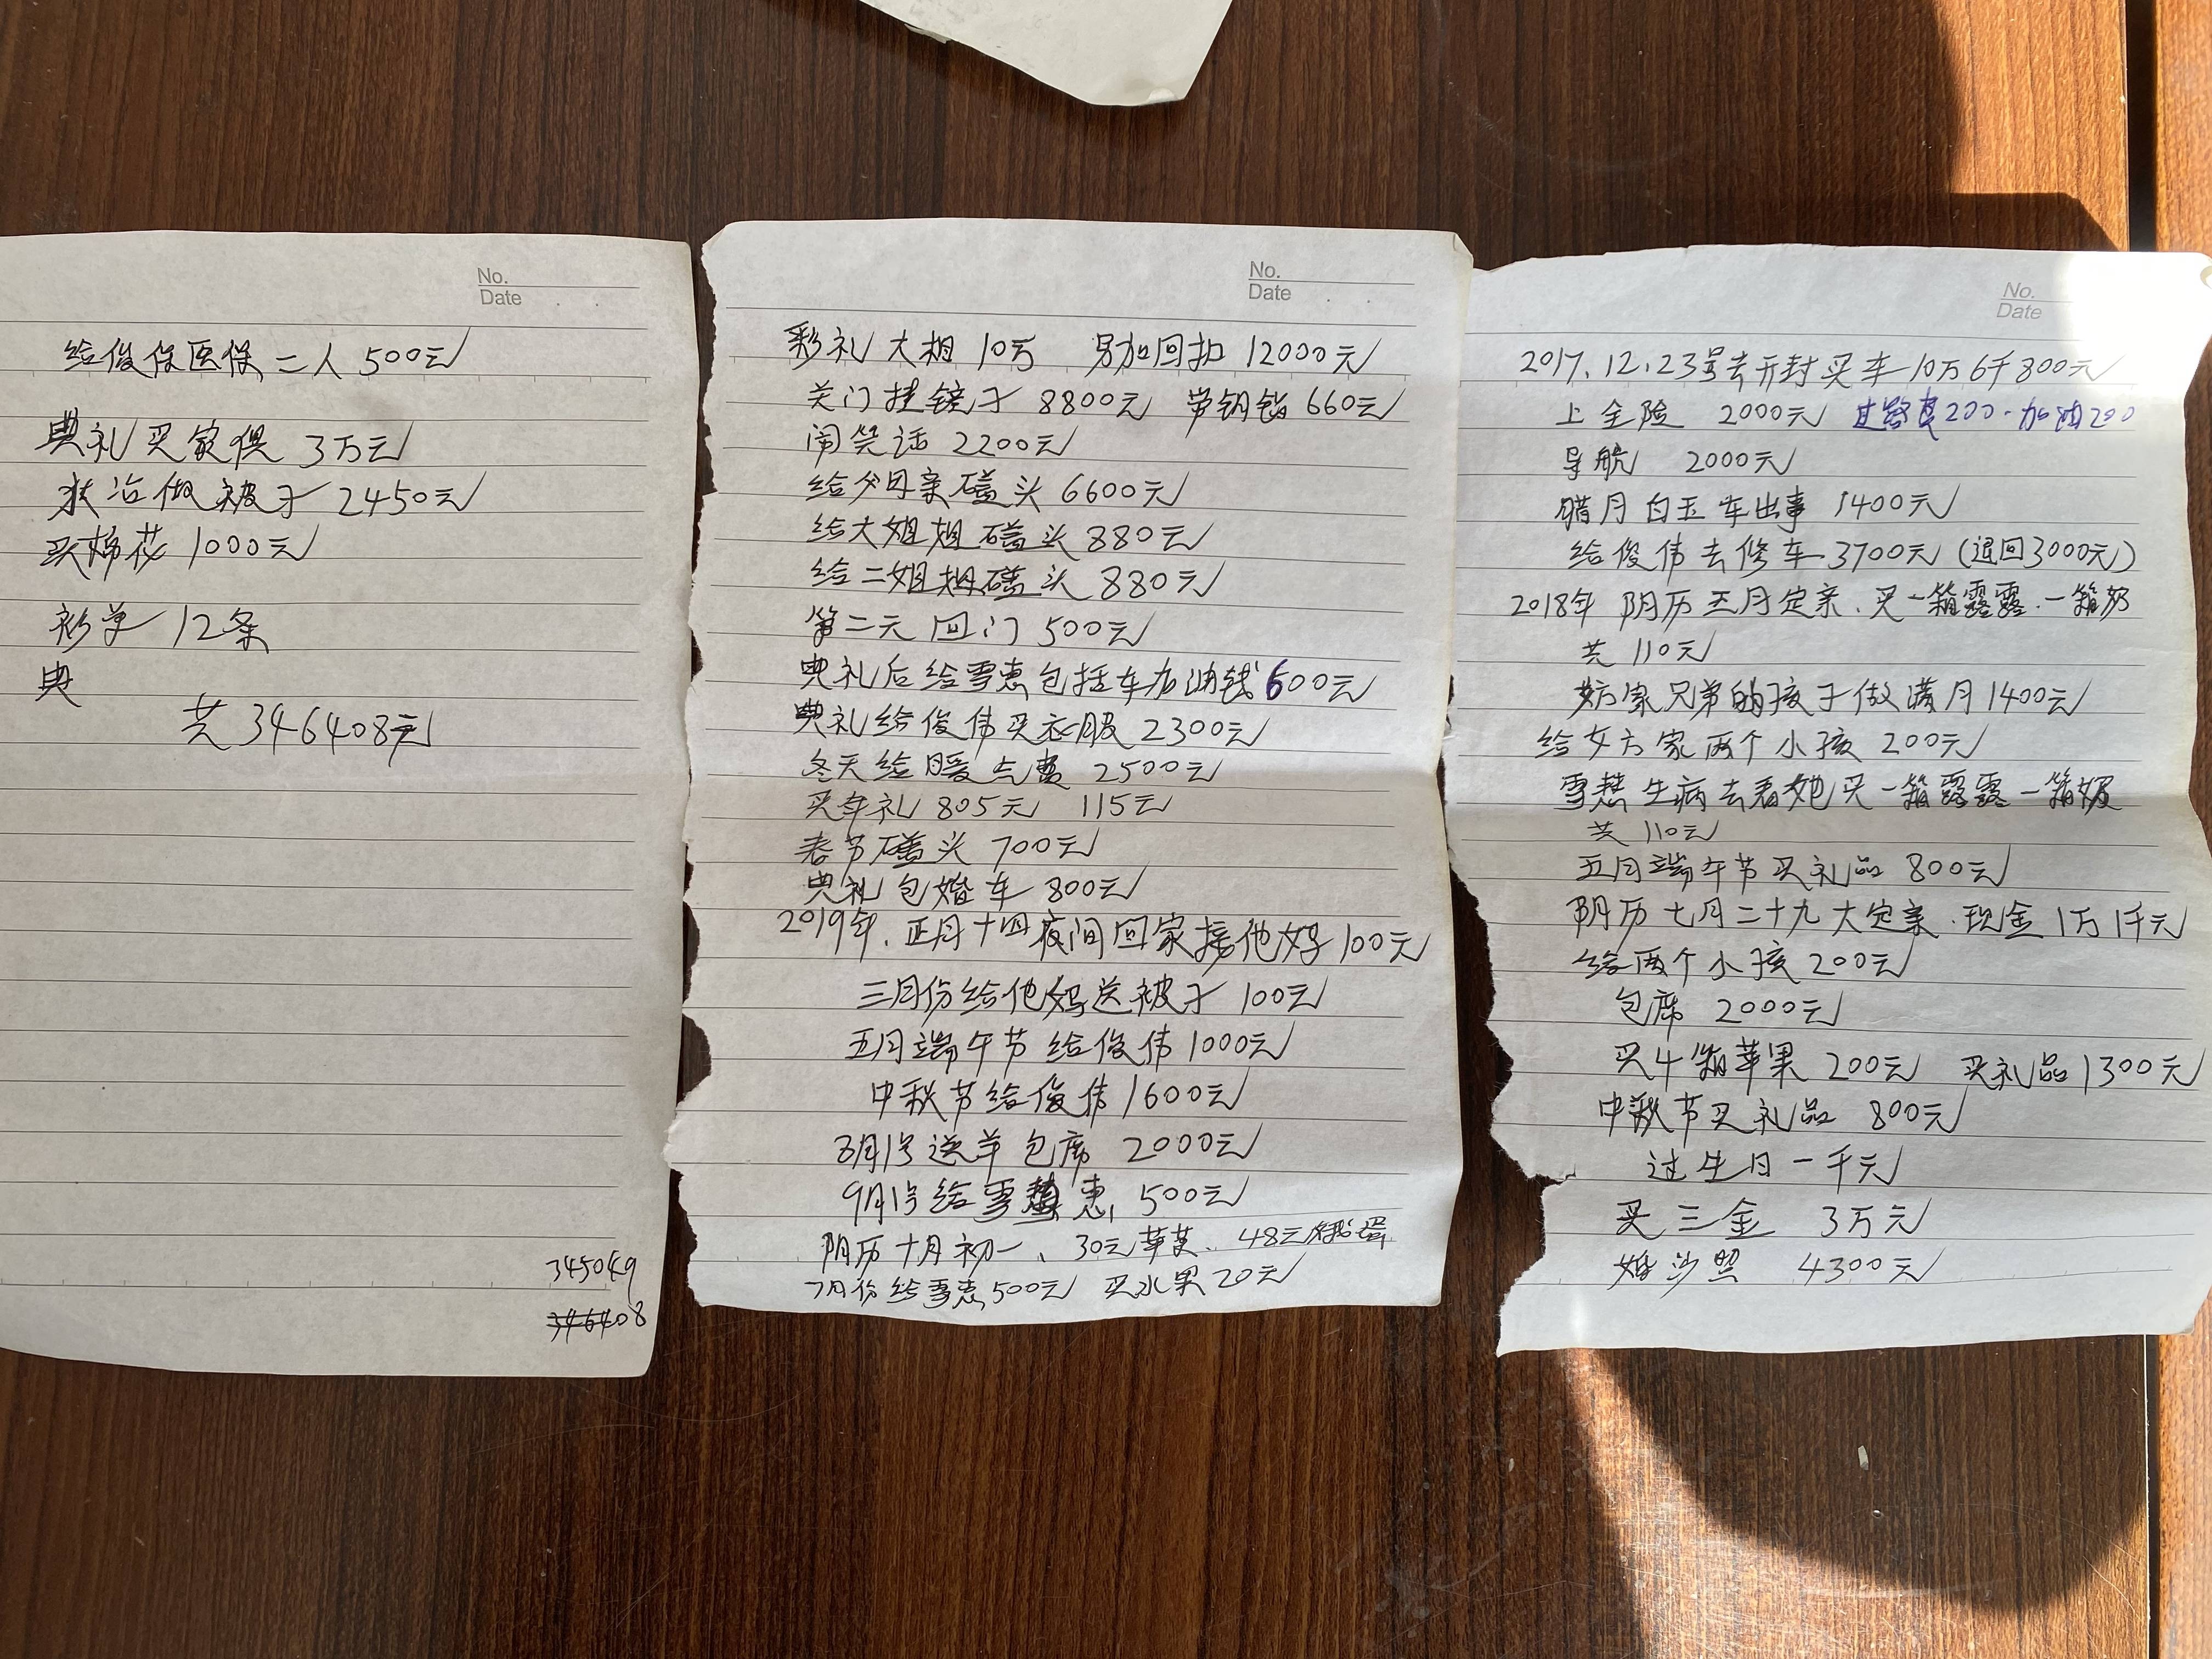 No.
Date
给俊伟医保二人 500元
典礼买家俱 3万元
做被子 2450元
买棉花 1000元
衫单 12条
典
共 346408元
345049
346408
No.
Date
彩礼大相 10万 另加回扣 12000元
关门挂镜子 8800元 带钥匙 660元
闹笑话 2200元
给父母亲磕头 6600元
给大姐姐磕头 880元
给二姐姐磕头 880元
第二天回门 500元
典礼后给雪惠包括车加油钱 600元
典礼给俊伟买衣服 2300元
冬天给暖气费 2500元
买年礼 805元 115元
春节磕头 700元
典礼包婚车 800元
2019年.正月十四夜间回家接他妈 100元
三月份给他妈送被子 100元
五月端午节给俊伟 1000元
中秋节给俊伟 1600元
8月1号送羊包席 2000元
9月1号给雪惠 500元
阴历十月初一、30元苹果、48元鸡蛋
7月份给雪惠 500元 买水果 20元
No.
Date
2017.12.23号去开封买车 10万6千800元
上全险 2000元 过路费200.加油200
导航 2000元
腊月白玉车出事 1400元
给俊伟去修车 3700元(退回3000元)
2018年 阴历五月定亲.买一箱露露.一箱奶
共 110元
女方家兄弟的孩子做满月 1400元
给女方家两个小孩 200元
雪慧生病去看她买一箱露露一箱奶
共 110元
五月端午节买礼品 800元
阴历七月二十九大定亲.现金 1万1千元
给两个小孩 200元
包席 2000元
买4箱苹果 200元 买礼品 1300元
中秋节买礼品 800元
过生日一千元
买三金 3万元
婚沙照 4300元